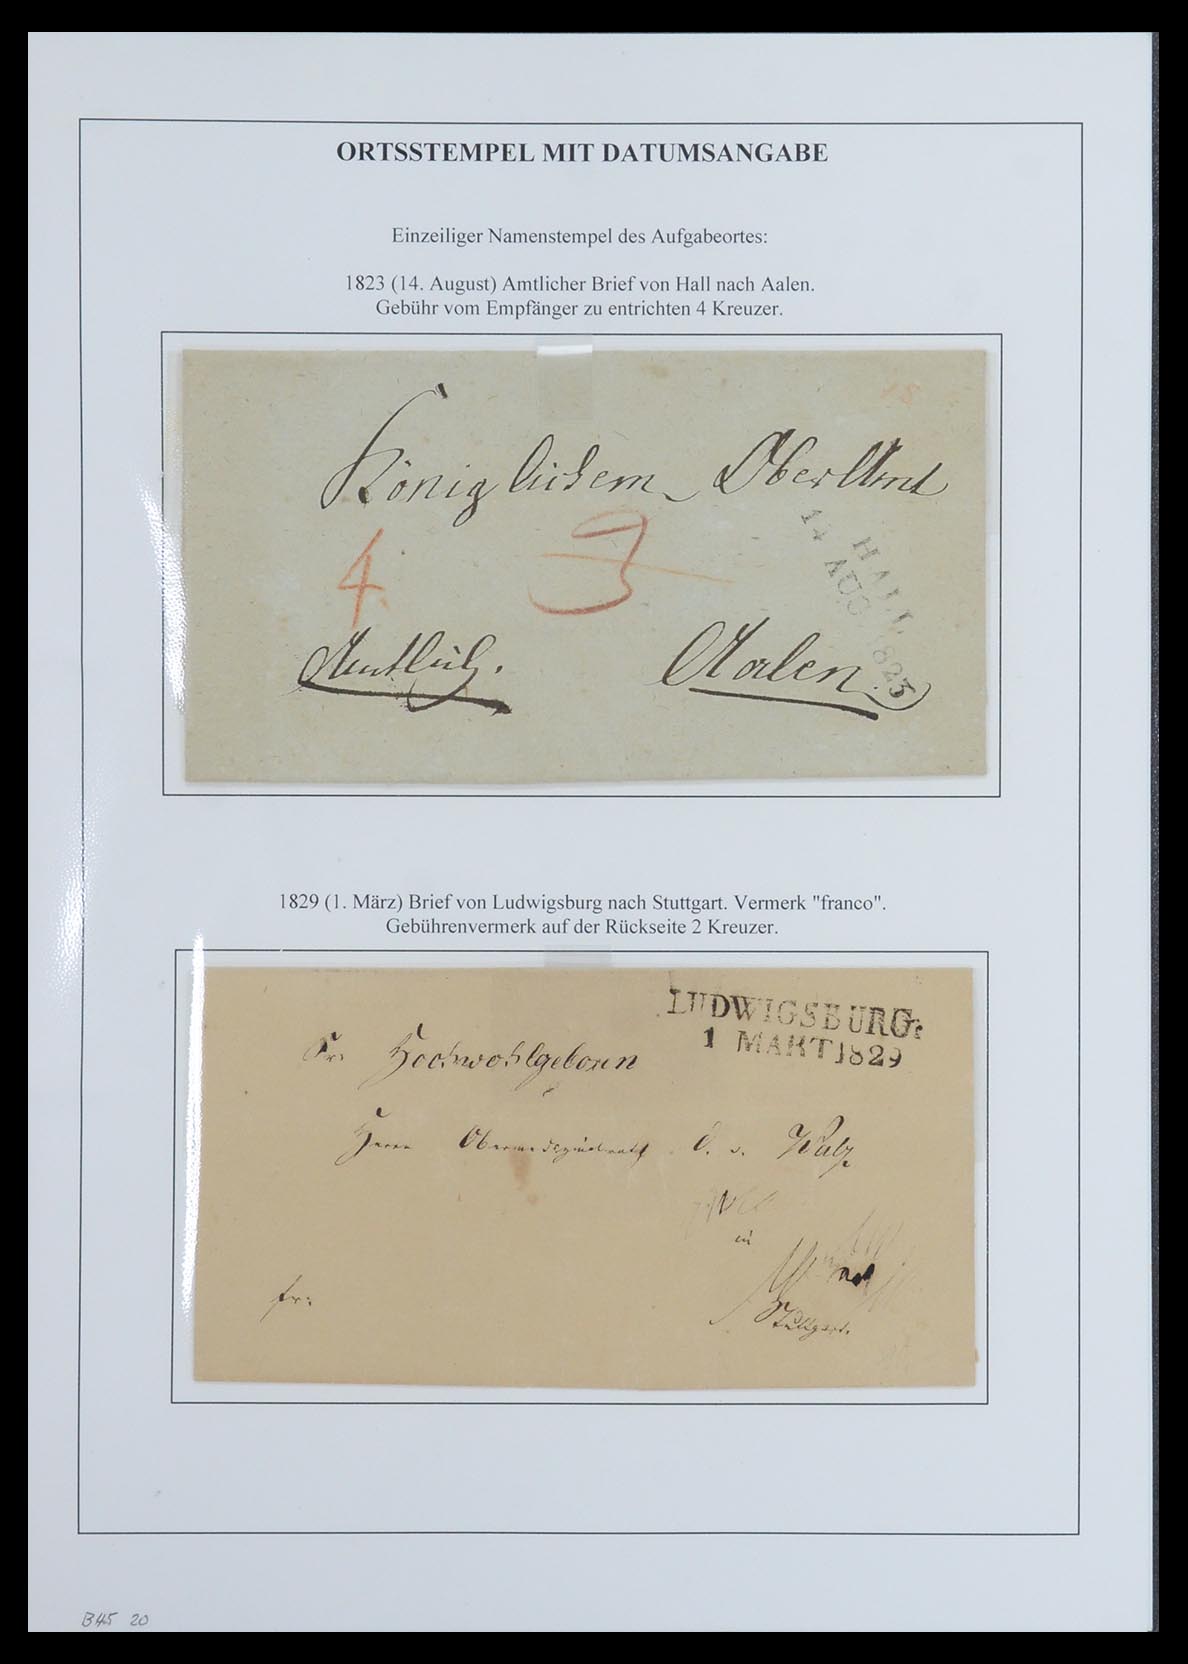 ORTSSTEMPEL MIT DATUMSANGABE
Einzeiliger Namenstempel des Aufgabeortes:
1823 (14. August) Amtlicher Brief von Hall nach Aalen.
Gebühr vom Empfänger zu entrichten 4 Kreuzer.
Königlichem OberAmt
HALL
14 AUG 1823
4
3
Amtlich.
Aalen.
1829 (1. März) Brief von Ludwigsburg nach Stuttgart. Vermerk "franco".
Gebührenvermerk auf der Rückseite 2 Kreuzer.
LUDWIGSBURG:
1 MART 1829
Sr: Hochwohlgeborn
Herrn Obermedizinalrath v. Walz
in
Stuttgart.
fr:
B45 20